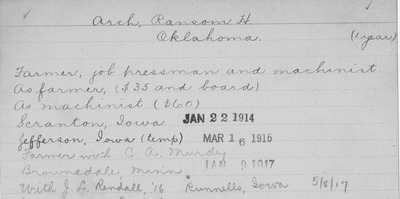 Arch, Ransom H.
Oklahoma. (1 year)
Farmer, job pressman and machinist
As farmer, ($35 and board)
As machinist ($60)
Scranton, Iowa. JAN 22 1914
Jefferson, Iowa (temp) MAR 16 1916
Farmer with C. A.
Brownsdale, Minn, JAN 9 1917
With J. L. Rendall, '16 Runnells, Iowa 5/8/17